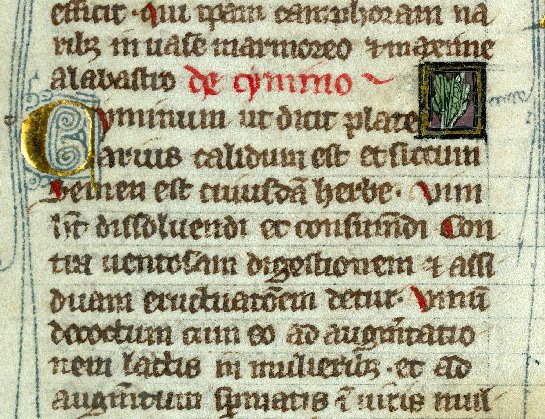 efficit. Qui ipam camphoram na
ribꝫ in uase marmoreo ⁊ maxime
alabastro de cymino
Cyminum ut dicit plate
arius calidum est et siccum
Semen est cuiusdā herbe. Vim
dissoluendi et consumēdi Con
tra uentosam digestionem ⁊ assi
duam eructuatōem detur. Vinū
decoctum cum eo ad augm̄tatio
nem lactis in mulieribꝫ. et ad
augm̄tum sp̄matis ī uiris mul